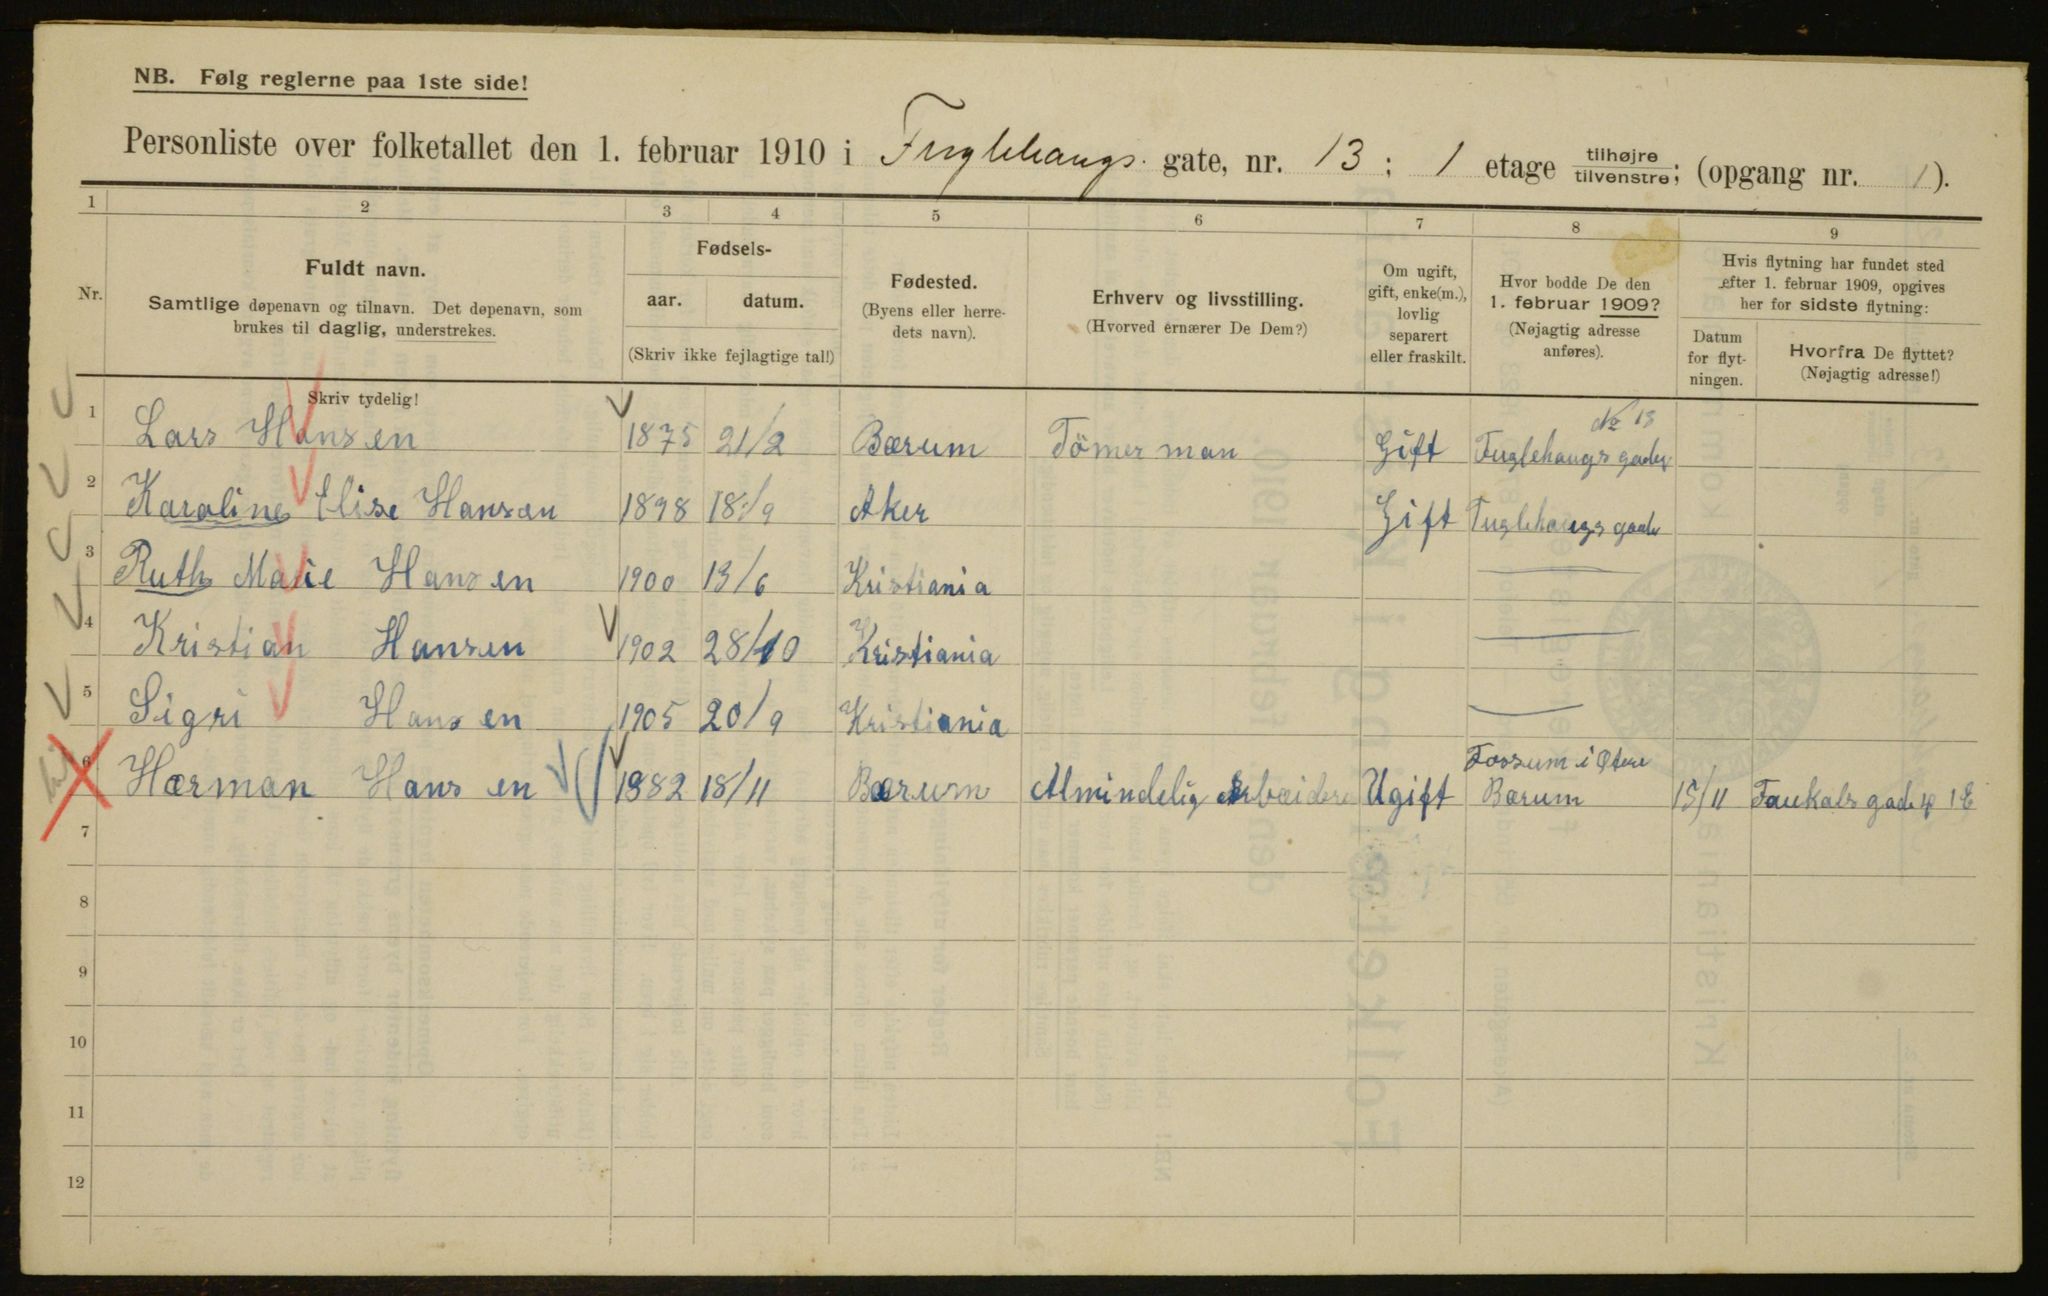 NB. Følg reglerne paa 1ste side!
Personliste over folketallet den 1. februar 1910 i Fuglehaugs gate, nr. 13 ; 1 etage tilhøjre tilvenstre; (opgang nr. 1).
1 2 3 4 5 6 7 8 9
Nr.
Fuldt navn.
Samtlige døpenavn og tilnavn. Det døpenavn, som
brukes til daglig, understrekes.
Skriv tydelig!
Fødsels-
aar. datum.
(Skriv ikke fejlagtige tal!)
Fødested.
(Byens eller herre-
dets navn).
Erhverv og livsstilling.
(Hvorved ernærer De Dem?)
Om ugift,
gift, enke(m.),
lovlig
separert
eller fraskilt.
Hvor bodde De den
1. februar 1909?
(Nøjagtig adresse
anføres).
Hvis flytning har fundet sted
efter 1. februar 1909, opgives
her for sidste flytning:
Datum
for flyt-
ningen.
Hvorfra De flyttet?
(Nøjagtig adresse!)
No 13
1 Lars Hansen 1875 21/2 Bærum Tömerman Gift Fuglehaugsgaden
2 Karoline Elise Hansen 1898 18/9 Aker Gift Fuglehaugsgade
3 Ruth Marie Hansen 1900 13/6 Kristiania
4 Kristian Hansen 1902 28/10 Kristiania
5 Sigri Hansen 1905 20/9 Kristiania
Fossum i
6 Hærman Hansen 1882 18/11 Bærum Almindelig Arbæider Ugift Bærum 15/11
7
8
9
10
11
12